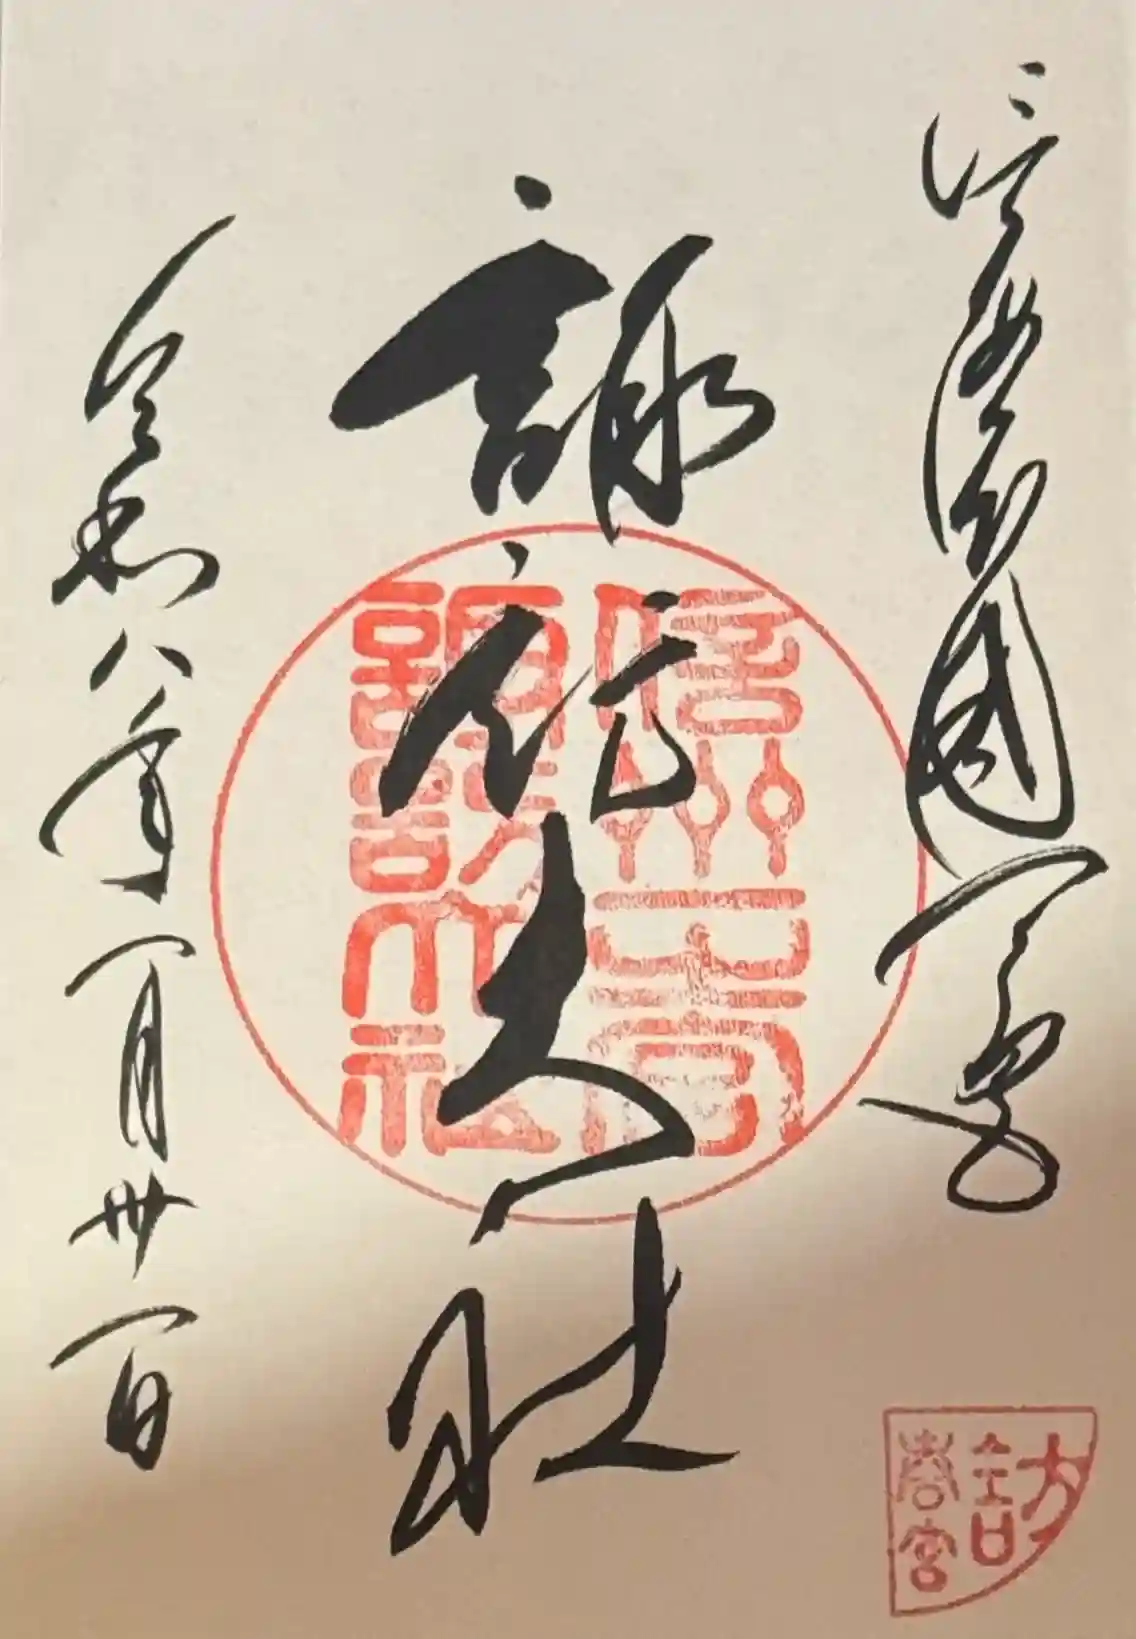 信濃國一宮
諏訪大社
令和八年一月卅一日
諏訪大社
訪
春宮